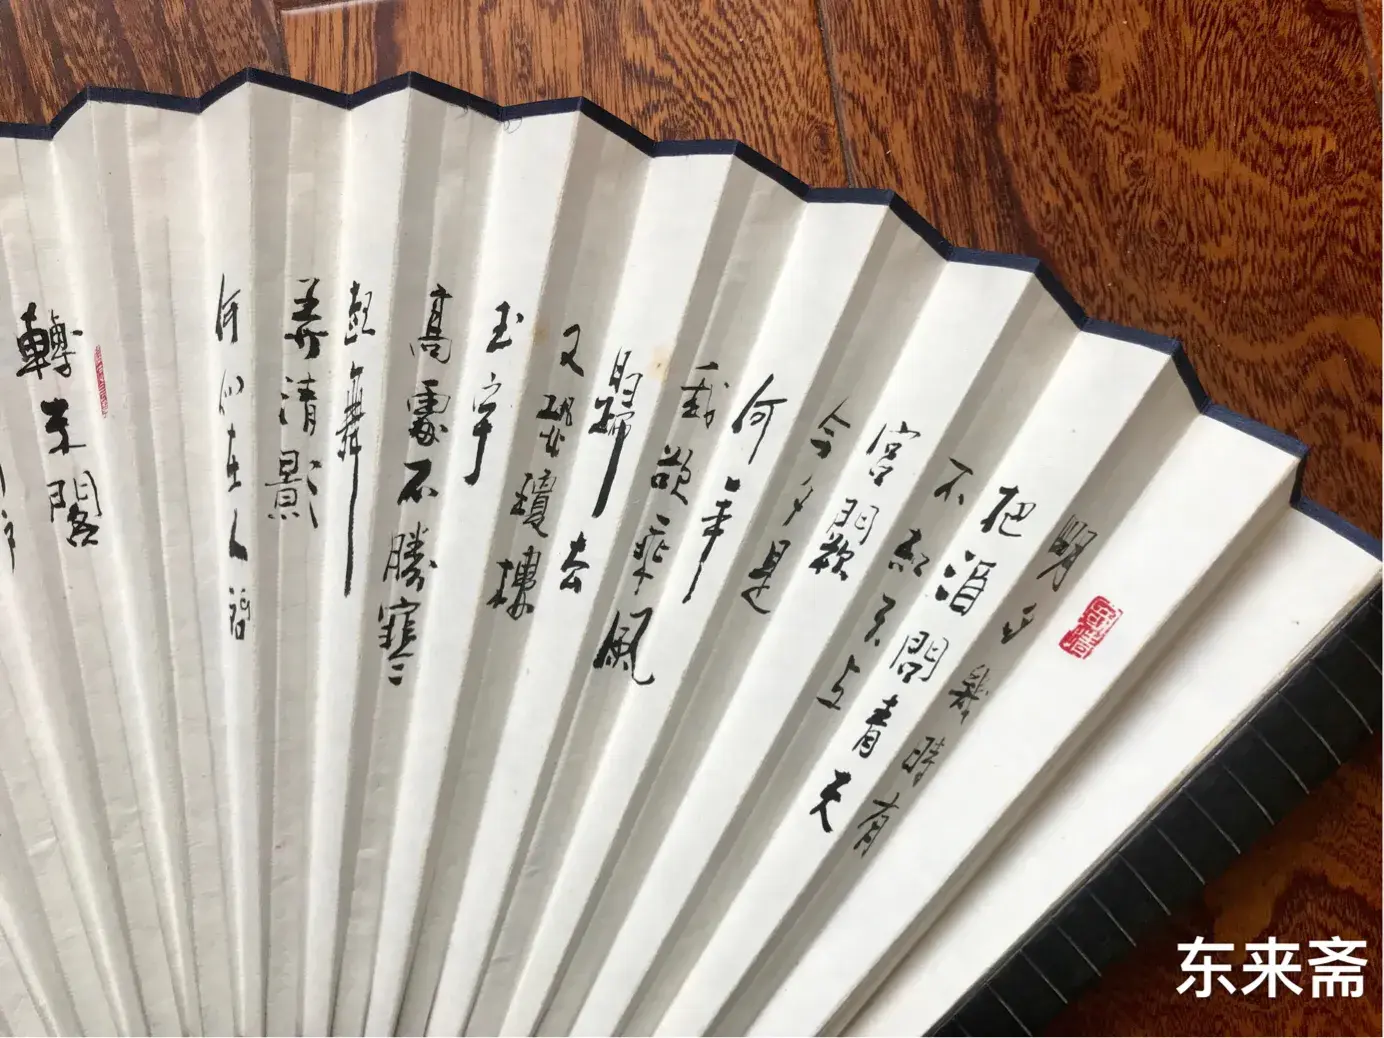 明月幾時有
把酒問青天
不知天上
宮闕
今夕是
何年
我欲乘風
歸去
又恐瓊樓
玉宇
高處不勝寒
起舞
弄清影
何似在人間
轉朱閣
东来斋